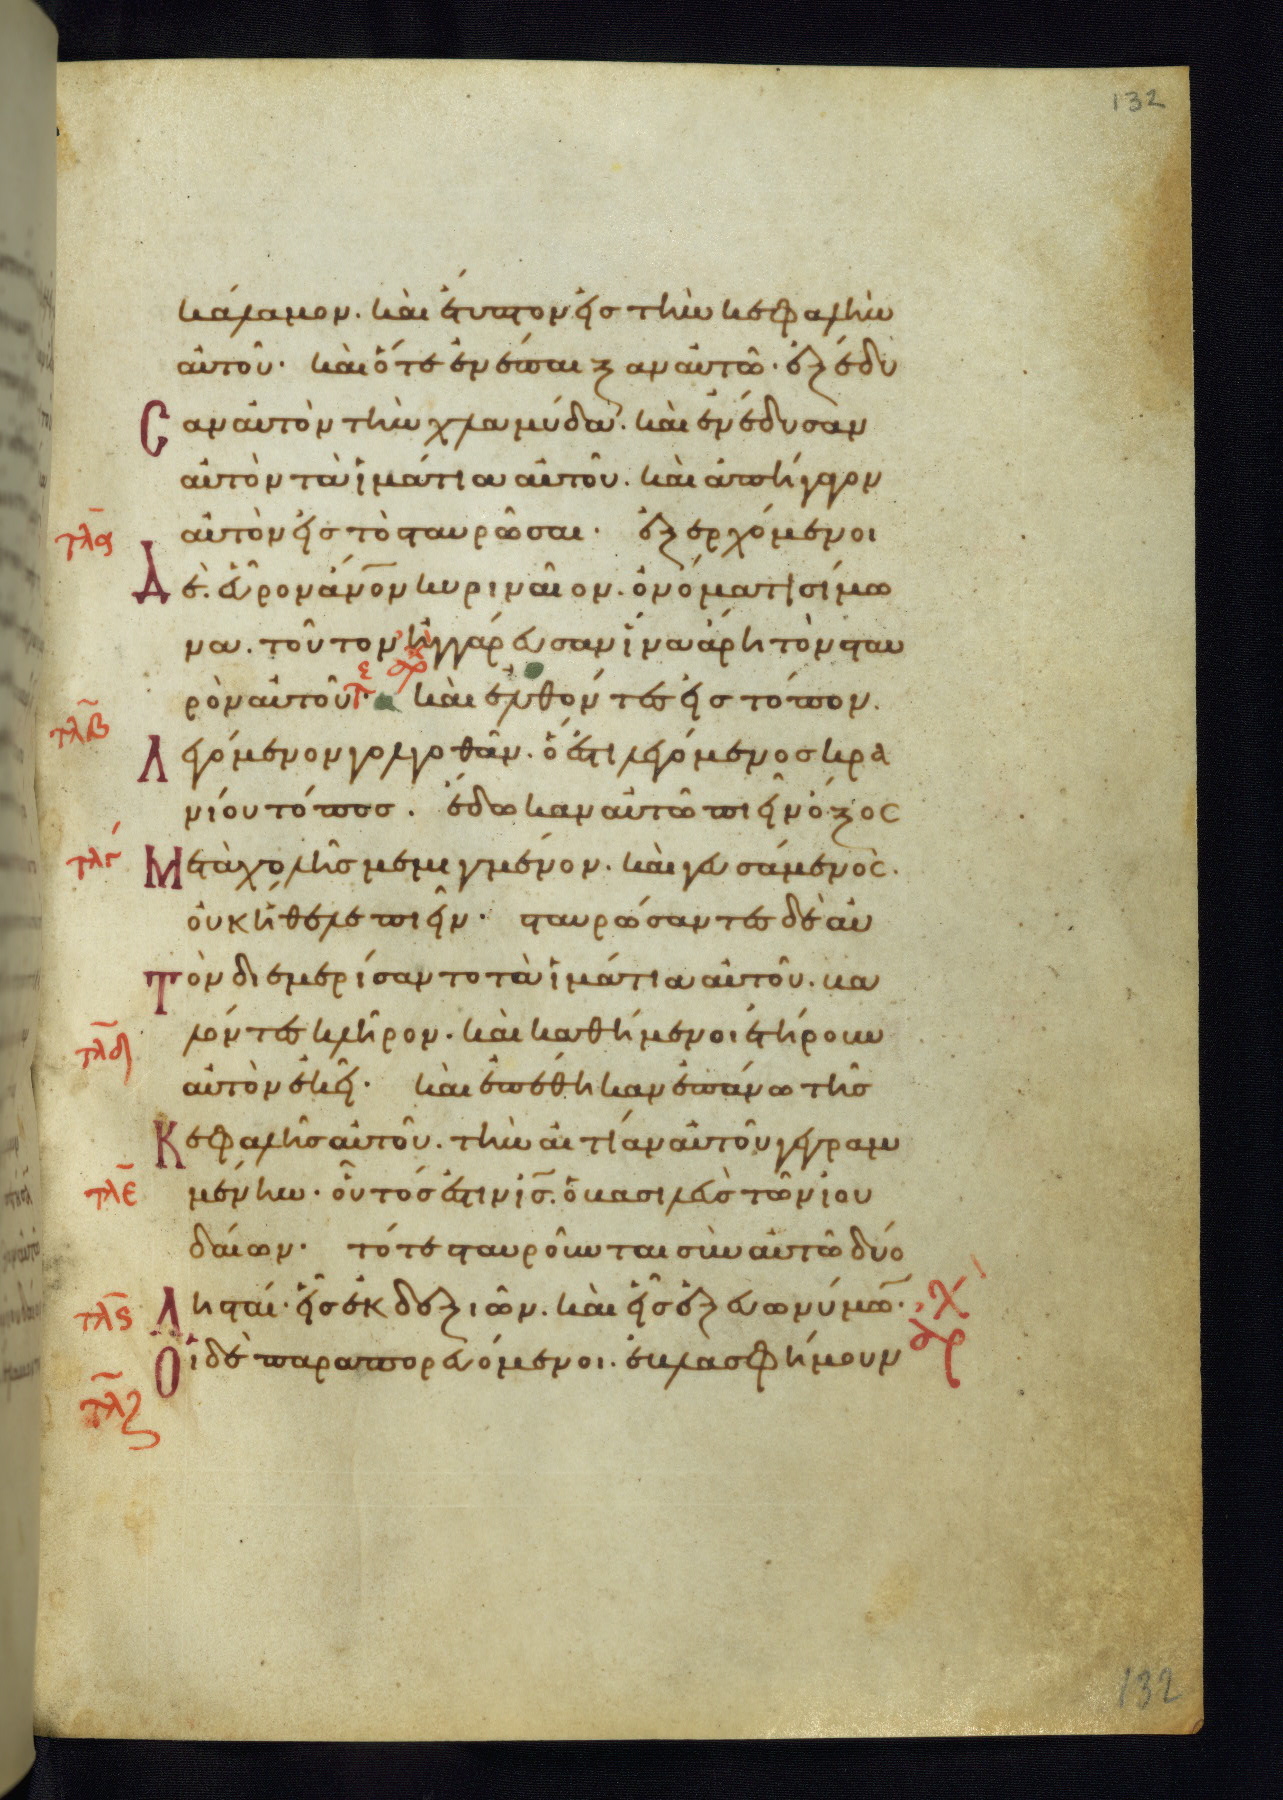 132
κάλαμον. καὶ ἔτυπτον εἰς τὴν κεφαλὴν
αὐτοῦ· καὶ ὅτε ἐνέπαιξαν αὐτῶ· ἐξέδυ
Σαν αὐτὸν τὴν χλαμύδα. καὶ ἐνέδυσαν
αὐτὸν τὰ ἱμάτια αὐτοῦ. καὶ ἀπήγαγον
αὐτὸν εἰς τὸ σταυρῶσαι· ἐξερχόμενοι
τλα
Δὲ. εὗρον ἄν̅ο̅ν κυρηναῖον. ὀνόματι σίμω
να. τοῦτον ἠγγάρευσαν ἵνα ἄρη τὸν σταυ
ρὸν αὐτοῦ· καὶ ἐλθόντες εἰς τόπον.
τλβ
Λεγόμενον γολγοθᾶν. ὅ ἐστι λεγόμενος κρα
νίου τόπος. ἔδωκαν αὐτῶ πιεῖν ὄξος
τλγ
Μετὰ χολῆς μεμιγμένον. καὶ γευσάμενος.
οὐκ ἤθελε πιεῖν· σταυρώσαντες δὲ αὐ
Τὸν διεμερίσαντο τὰ ἱμάτια αὐτοῦ. βα
λόντες κλῆρον. καὶ καθήμενοι ἐτήρουν
τλδ
αὐτὸν ἐκεῖ. καὶ ἐπέθηκαν ἐπάνω τῆς
Κεφαλῆς αὐτοῦ. τὴν αἰτίαν αὐτοῦ γεγραμ
τλε
μένην· οὗτός ἐστιν ι̅ς̅. ὁ βασιλεὺς τῶν ἰου
δαίων· τότε σταυροῦνται σὺν αὐτῶ δύο
τλς
Λησταί· εἷς ἐκ δεξιῶν. καὶ εἷς ἐξ εὐωνύμω̅·
Οἱ δὲ παραπορευόμενοι. ἐβλασφήμουν
τλζ
132